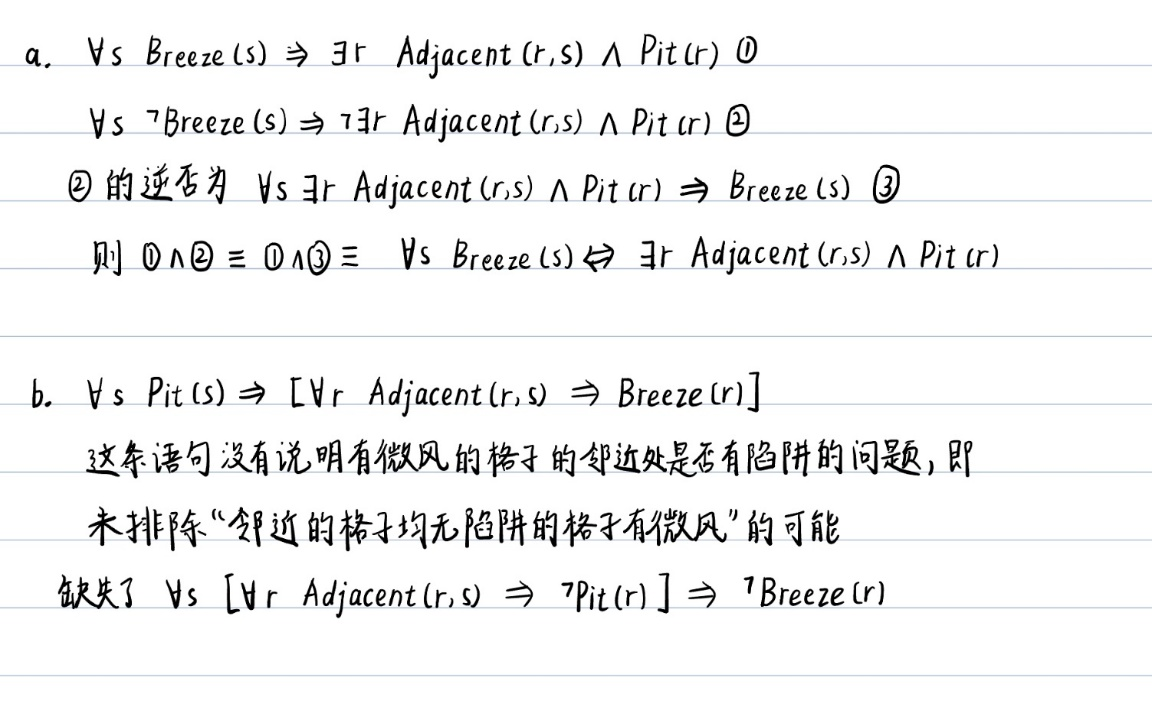 a. ∀s Breeze(s) ⇒ ∃r Adjacent(r,s) ∧ Pit(r) ①
∀s ¬Breeze(s) ⇒ ¬∃r Adjacent(r,s) ∧ Pit(r) ②
②的逆否为 ∀s ∃r Adjacent(r,s) ∧ Pit(r) ⇒ Breeze(s) ③
则 ①∧② ≡ ①∧③ ≡ ∀s Breeze(s) ⇔ ∃r Adjacent(r,s) ∧ Pit(r)
b. ∀s Pit(s) ⇒ [∀r Adjacent(r,s) ⇒ Breeze(r)]
这条语句没有说明有微风的格子的邻近处是否有陷阱的问题,即
未排除“邻近的格子均无陷阱的格子有微风”的可能
缺失了 ∀s [∀r Adjacent(r,s) ⇒ ¬Pit(r)] ⇒ ¬Breeze(r)